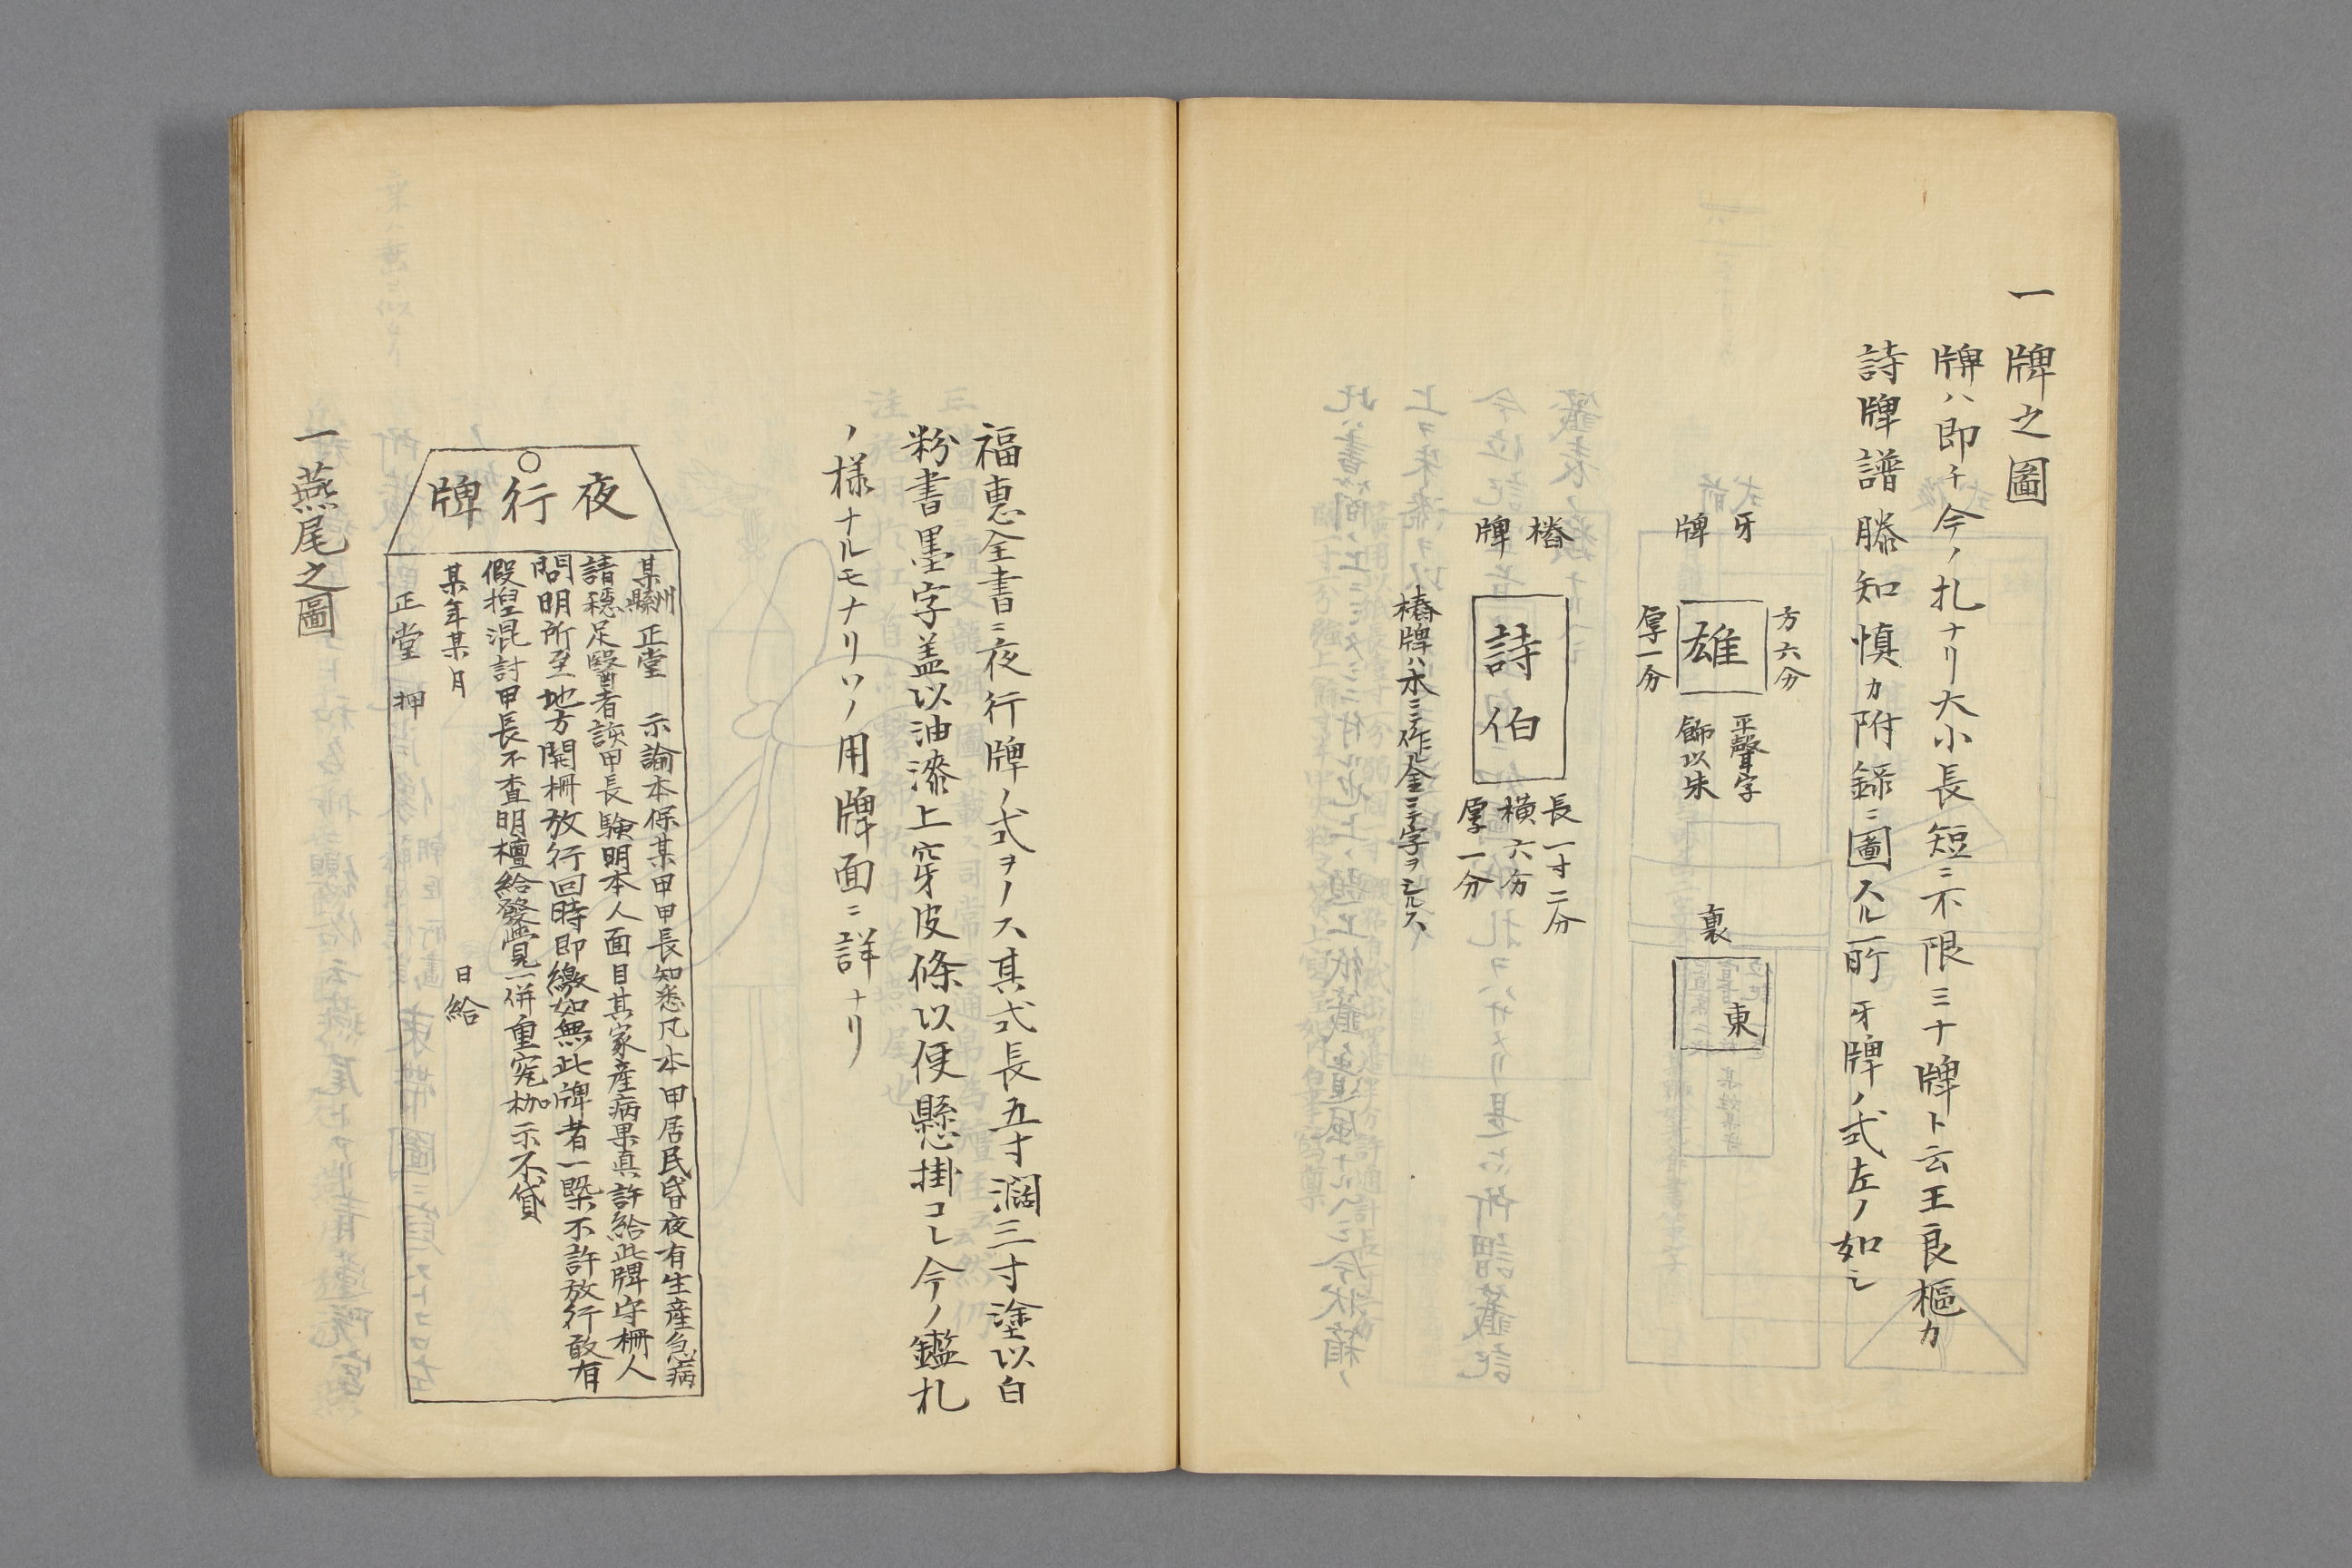 一牌之圖
牌ハ即チ今ノ札ナリ大小長短ニ不限ミナ牌ト云王良樞カ
詩牌譜滕知慎カ附録ニ圖スル所牙牌ノ式左ノ如シ
牙牌
方六分
雄
厚一分
平聲字
飾以朱
裏
東
椿牌
詩伯
長一寸二分
横六分
厚一分
椿牌ハ木ニテ作ル金ニテ字ヲシルス
福惠全書ニ夜行牌ノ式ヲノス其式長五寸濶三寸塗以白
粉書墨字盖以油漆上穿皮條以便懸掛コレ今ノ鑑札
ノ様ナルモナリソノ用牌面ニ詳ナリ
夜行牌
某州縣正堂 示諭本保某甲甲長知悉凡本甲居民昏夜有生産急病
請穏足醫者該甲長験明本人面目其家産病果真許給此牌守柵人
問明所至地方開柵放行回時即繳如無此牌者一槩不許放行敢有
假捏混討甲長不査明檀給發覺一併重究枷示不貸
某年某月 日給
正堂 押
一燕尾之圖